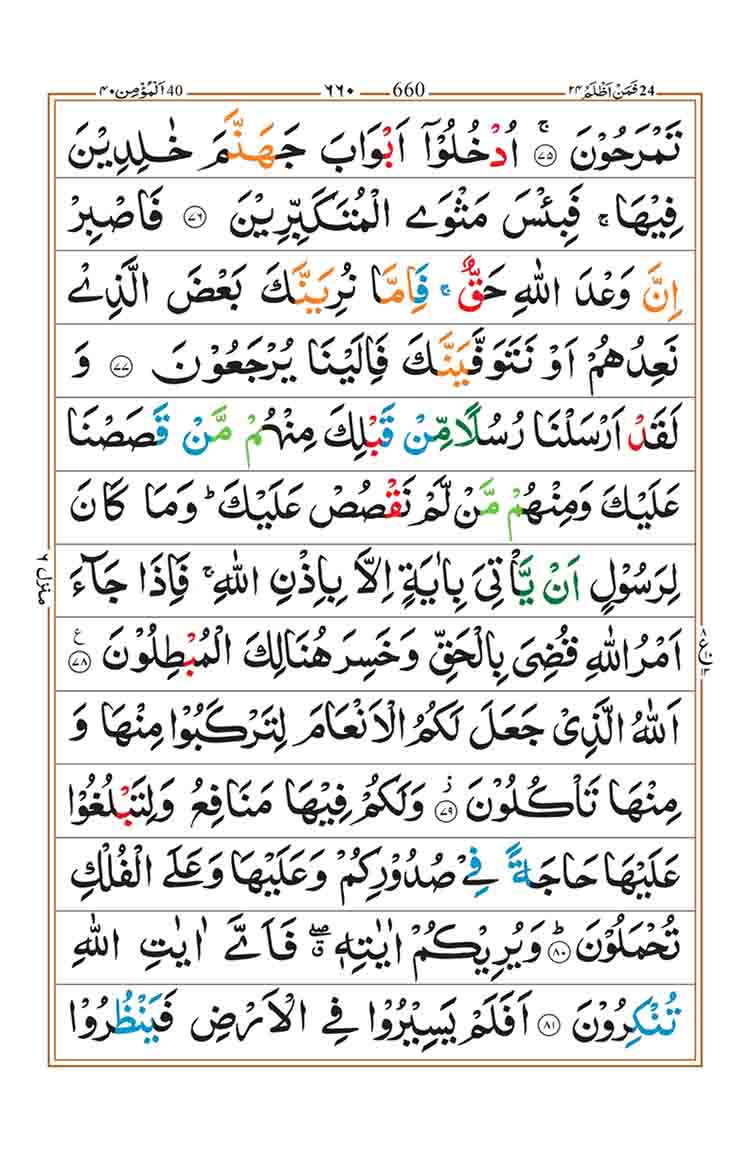 24 فَمَنْ اَظْلَمُ ٢٤ 660 ٦٦٠ 40 اَلْمُؤْمِن ٤٠
تَمْرَحُوْنَ ۚ ﴿٧٥﴾ اُدْخُلُوْۤا اَبْوَابَ جَهَنَّمَ خٰلِدِيْنَ
فِيْهَا ۚ فَبِئْسَ مَثْوَى الْمُتَكَبِّرِيْنَ ﴿٧٦﴾ فَاصْبِرْ
اِنَّ وَعْدَ اللّٰهِ حَقٌّ ۚ فَاِمَّا نُرِيَنَّكَ بَعْضَ الَّذِيْ
نَعِدُهُمْ اَوْ نَتَوَفَّيَنَّكَ فَاِلَيْنَا يُرْجَعُوْنَ ﴿٧٧﴾ وَ
لَقَدْ اَرْسَلْنَا رُسُلًا مِّنْ قَبْلِكَ مِنْهُمْ مَّنْ قَصَصْنَا
عَلَيْكَ وَمِنْهُمْ مَّنْ لَّمْ نَقْصُصْ عَلَيْكَ ؕ وَمَا كَانَ
لِرَسُوْلٍ اَنْ يَّاْتِىَ بِاٰيَةٍ اِلَّا بِاِذْنِ اللّٰهِ ۚ فَاِذَا جَآءَ
اَمْرُ اللّٰهِ قُضِىَ بِالْحَقِّ وَخَسِرَ هُنَالِكَ الْمُبْطِلُوْنَ ﴿٧٨﴾ ع
اَللّٰهُ الَّذِيْ جَعَلَ لَكُمُ الْاَنْعَامَ لِتَرْكَبُوْا مِنْهَا وَ
مِنْهَا تَاْكُلُوْنَ ؗ ﴿٧٩﴾ وَلَكُمْ فِيْهَا مَنَافِعُ وَلِتَبْلُغُوْا
عَلَيْهَا حَاجَةً فِيْ صُدُوْرِكُمْ وَعَلَيْهَا وَعَلَى الْفُلْكِ
تُحْمَلُوْنَ ؕ ﴿٨٠﴾ وَيُرِيْكُمْ اٰيٰتِهٖ ۖ ق فَاَىَّ اٰيٰتِ اللّٰهِ
تُنْكِرُوْنَ ﴿٨١﴾ اَفَلَمْ يَسِيْرُوْا فِى الْاَرْضِ فَيَنْظُرُوْا
منزل ٦